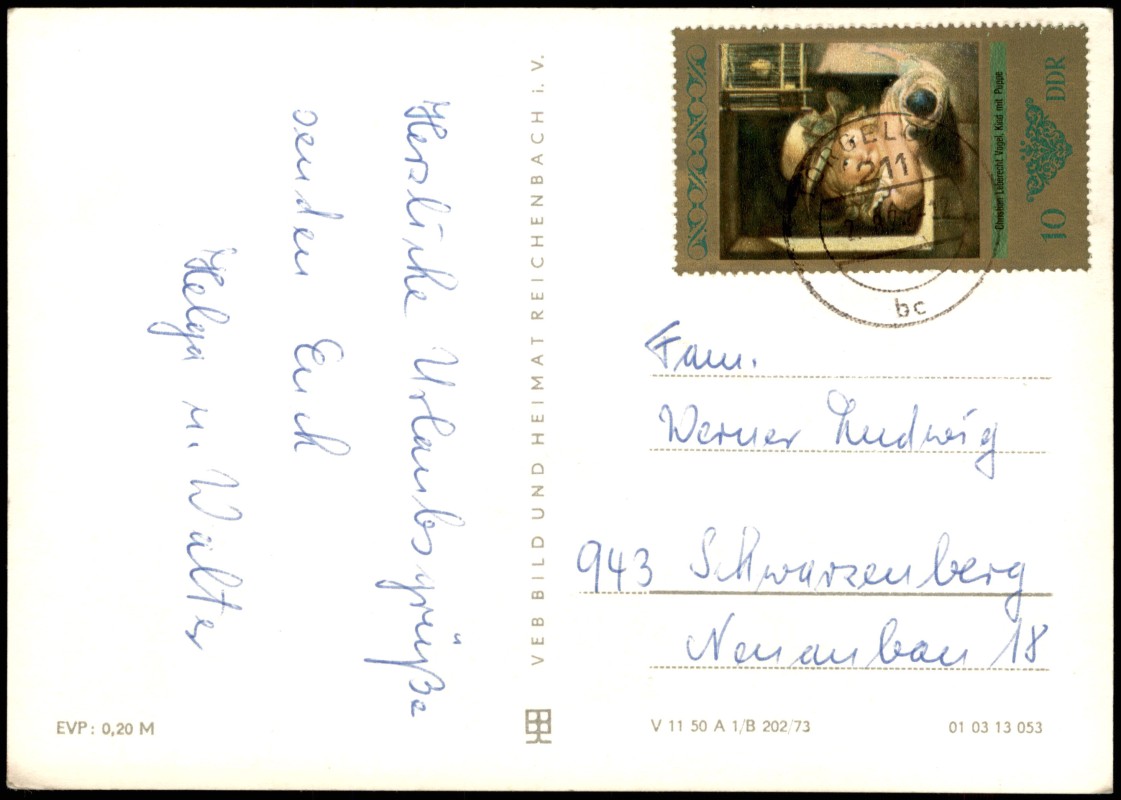 Herzliche Urlaubsgrüße
senden Euch
Helga u. Walter
VEB BILD UND HEIMAT REICHENBACH i. V.
Christian Leberecht Vogel, Kind mit Puppe
10 DDR
TORGELOW
211
bc
Fam.
Werner Ludwig
943 Schwarzenberg
Neuanbau 18
EVP: 0,20 M
V 11 50 A 1/B 202/73
01 03 13 053